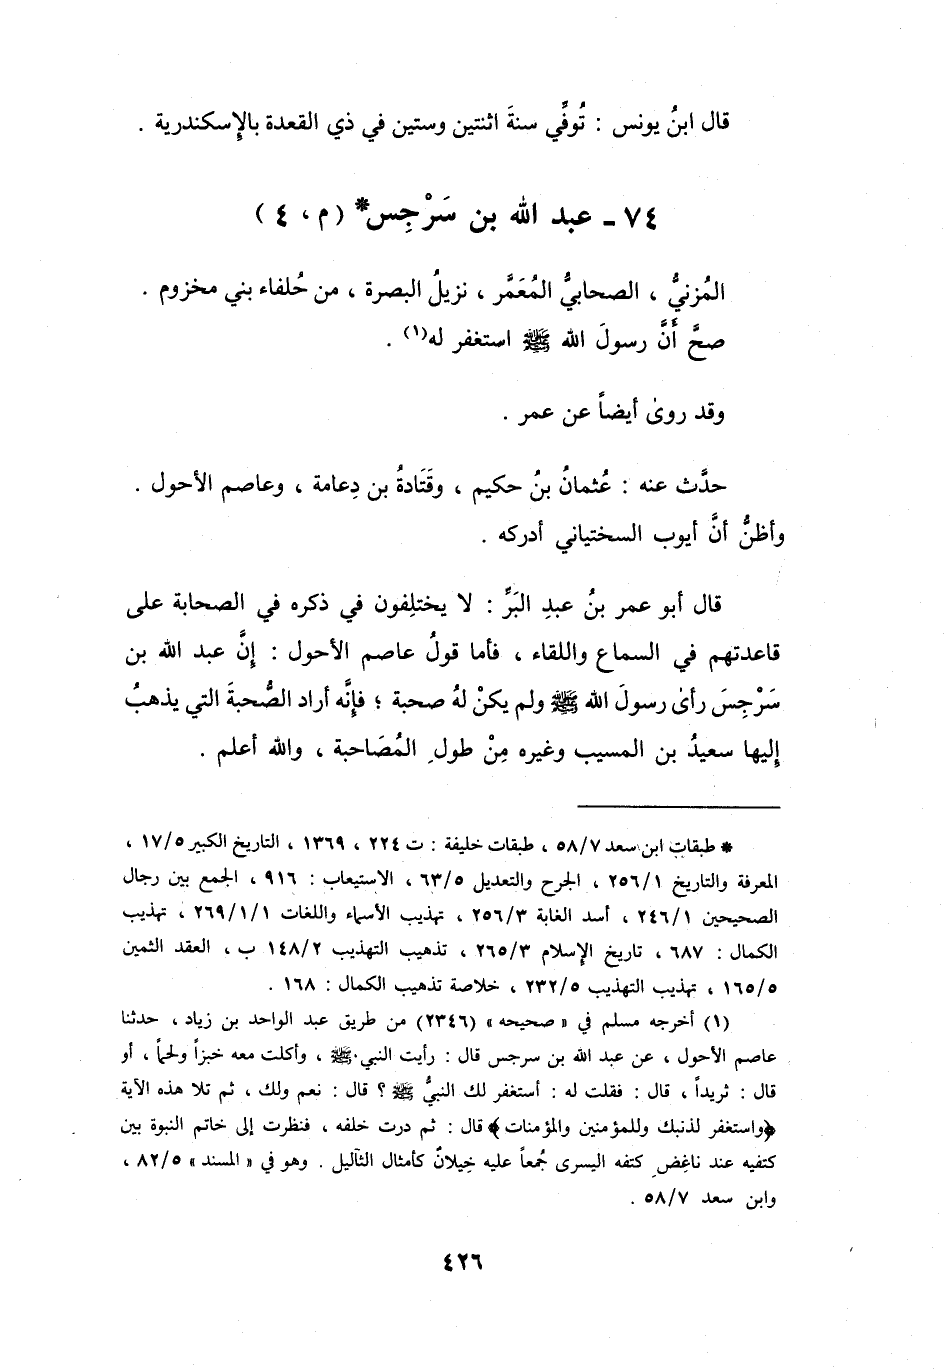 قال ابنُ يونس : تُوفِّي سنةَ اثنتين وستين في ذي القعدة بالإِسكندرية .
٧٤ - عبد الله بن سَرْجِس* (م ، ٤)
المُزنيُّ ، الصحابيُّ المُعَمَّر ، نزيلُ البصرة ، من حُلفاء بني مخزوم .
صحَّ أَنَّ رسولَ الله ﷺ استغفر له(١) .
وقد روىٰ أيضاً عن عمر .
حدَّث عنه : عُثمانُ بنُ حكيم ، وقَتَادةُ بن دِعامة ، وعاصم الأحول .
وأظنُّ أنَّ أيوب السختياني أدركه .
قال أبو عمر بنُ عبدِ البَرِّ : لا يختلِفون في ذكره في الصحابة على
قاعدتهم في السماع واللقاء ، فأما قولُ عاصم الأحول : إِنَّ عبد الله بن
سَرْجِسَ رأىٰ رسولَ الله ﷺ ولم يكنْ لهُ صحبة ؛ فإِنَّه أراد الصُّحبةَ التي يذهبُ
إليها سعيدُ بن المسيب وغيره مِنْ طولِ المُصَاحبة ، والله أعلم .
* طبقات ابن سعد ٥٨/٧ ، طبقات خليفة : ت ٢٢٤ ، ١٣٦٩ ، التاريخ الكبير ١٧/٥ ،
المعرفة والتاريخ ٢٥٦/١ ، الجرح والتعديل ٦٣/٥ ، الاستيعاب : ٩١٦ ، الجمع بين رجال
الصحيحين ٢٤٦/١ ، أسد الغابة ٢٥٦/٣ ، تهذيب الأسماء واللغات ٢٦٩/١/١ ، تهذيب
الكمال : ٦٨٧ ، تاريخ الإِسلام ٢٦٥/٣ ، تذهيب التهذيب ١٤٨/٢ ب ، العقد الثمين
١٦٥/٥ ، تهذيب التهذيب ٢٣٢/٥ ، خلاصة تذهيب الكمال : ١٦٨ .
(١) أخرجه مسلم في « صحيحه » (٢٣٤٦) من طريق عبد الواحد بن زياد ، حدثنا
عاصم الأحول ، عن عبد الله بن سرجس قال : رأيت النبي ﷺ ، وأكلت معه خبزاً ولحماً ، أو
قال : ثريداً ، قال : فقلت له : أستغفر لك النبيُّ ﷺ ؟ قال : نعم ولك ، ثم تلا هذه الآية
﴿واستغفر لذنبك وللمؤمنين والمؤمنات﴾ قال : ثم درت خلفه ، فنظرت إلى خاتم النبوة بين
كتفيه عند ناغِضِ كتفه اليسرى جُمعاً عليه خِيلانٌ كأمثال الثآليل . وهو في « المسند » ٨٢/٥ ،
وابن سعد ٥٨/٧ .
٤٢٦